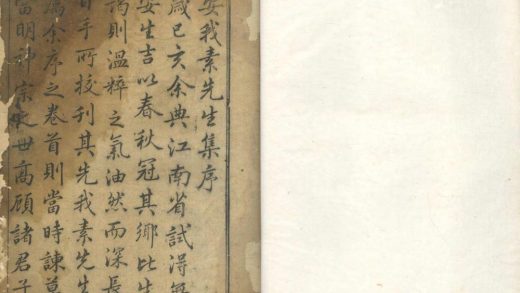 安我素先生集序
歲己亥余典江南省試得無
安生吉以春秋冠其鄉比生
謁則溫粹之氣油然而深長
日手所校刊其先我素先生
為余序之卷首則當時諫草
當明神宗之世高顧諸君子